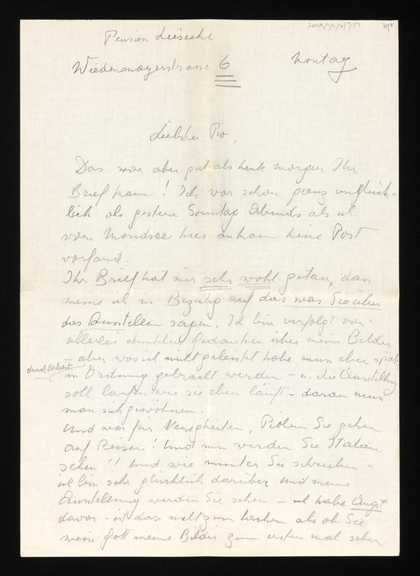 Pension
Wiedenmayerstrasse 6
Montag
Liebster
Das war aber gut als heute morgen Ihr
Brief kam! Ich war schon ganz unglück-
lich als gestern Sonntag Abends als ich
vom Mondsee hier ankam keine Post
vorfand.
Ihr Brief hat mir sehr wohl getan, dan
meine ich in Bezug auf das was Sie über
das Ausstellen sagen. Ich bin verfolgt von
allerlei Gedanken über meine Bilder
- aber was ich nicht geleistet habe muss eben
in Ordnung gebracht werden - u. die Ausstellung
soll laufen wie sie eben läuft - daran muss
man sich gewöhnen.
Und was für Neuigkeiten, Sie gehen
auf Reisen! Und nun werden Sie Italien
sehen!! Und wie munter Sie schreiben -
ich bin sehr glücklich darüber und meine
Ausstellung werden Sie sehen - ich habe Angst
davor - ist das nicht zum als ob Sie
meine Bilder zum ersten mal sehen